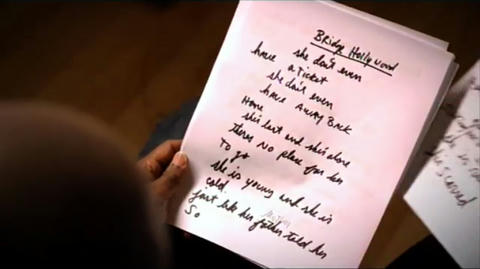 Bridge Hollywood
she don't even
have a Ticket
she don't even
have Away Back
Home
she's lost and she's alone
theres No place for her
To go
she is young and she is
cold.
just like her father told her
So